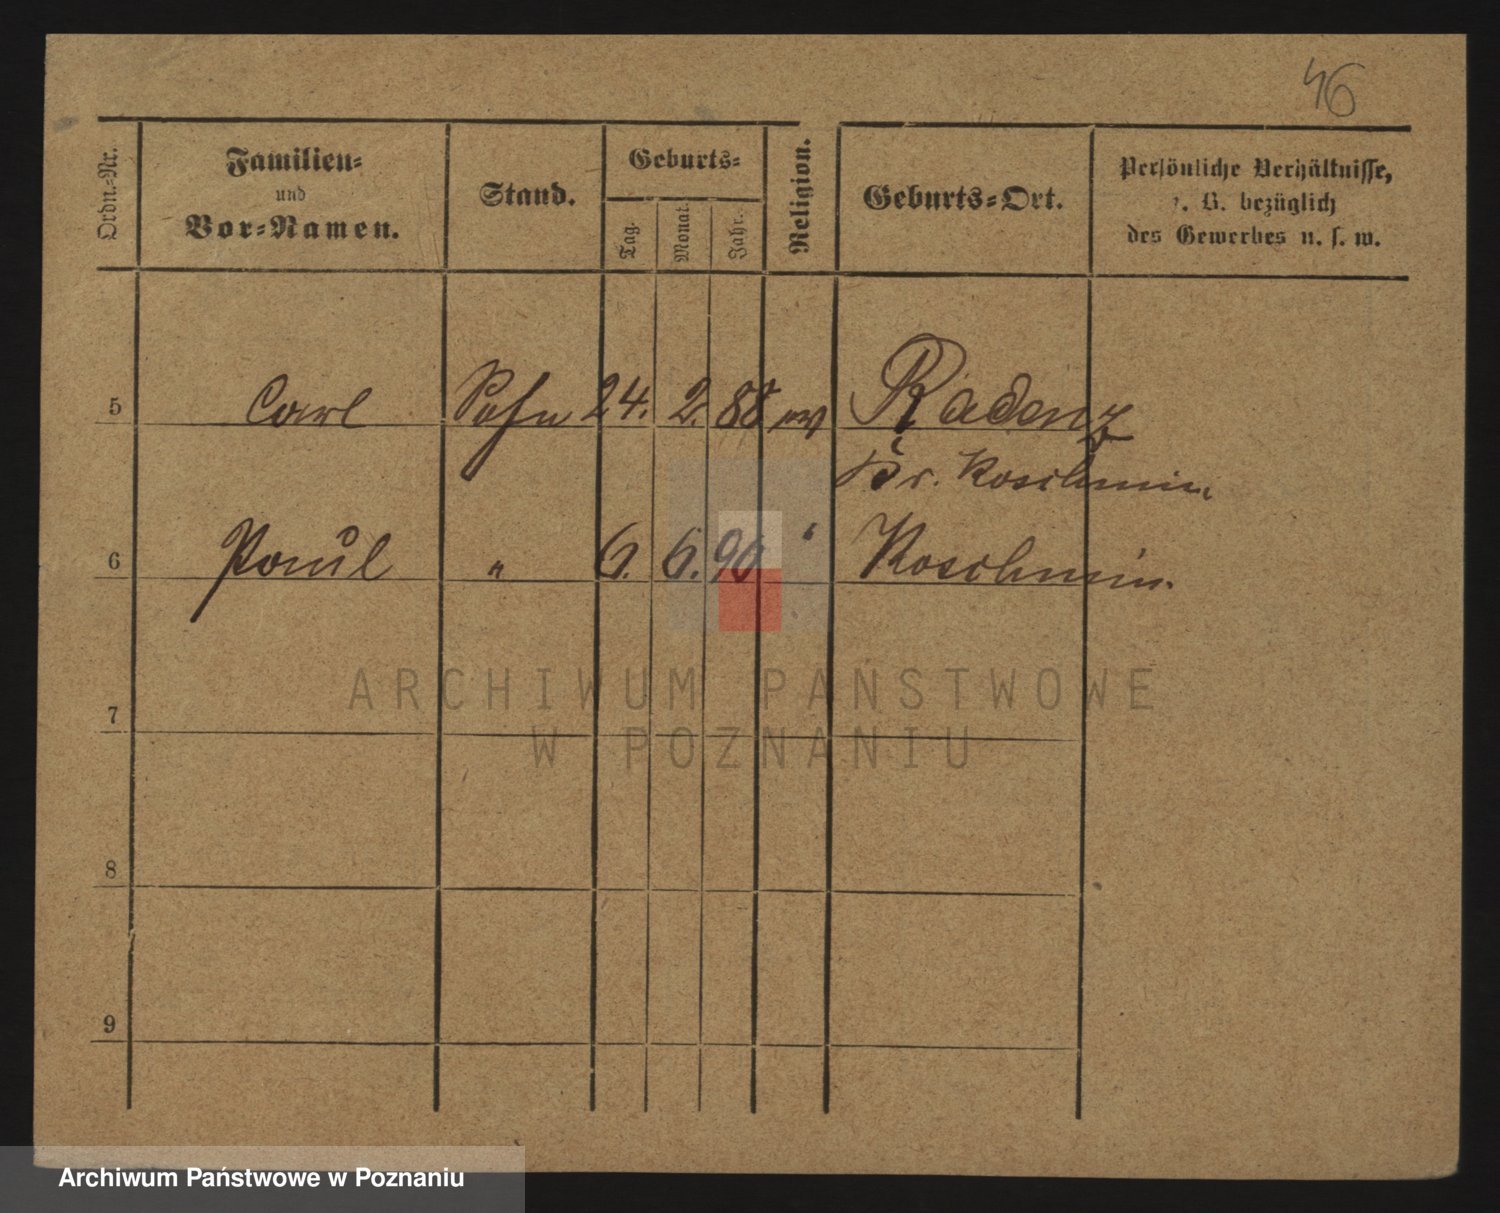 46
Ordn.-Nr.
Familien-
und
Vor-Namen.
Stand.
Geburts-
Tag.
Monat.
Jahr.
Religion.
Geburts-Ort.
Persönliche Verhältnisse,
z. B. bezüglich
des Gewerbes u. s. w.
5 Carl Sohn 24. 2. 88 ev Radenz
Kr. Koschmin
6 Paul " 6. 6. 90 " Koschmin.
7
8
9
ARCHIWUM PAŃSTWOWE
W POZNANIU
Archiwum Państwowe w Poznaniu